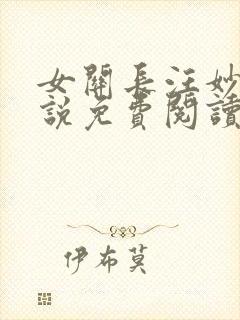 女關長汪妙
說免費閱讀
伊布莫